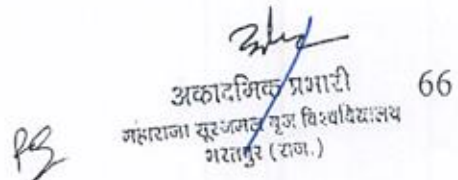 अकादमिक प्रभारी
66
महाराजा सूरजमल बृज विश्वविद्यालय
भरतपुर (राज.)